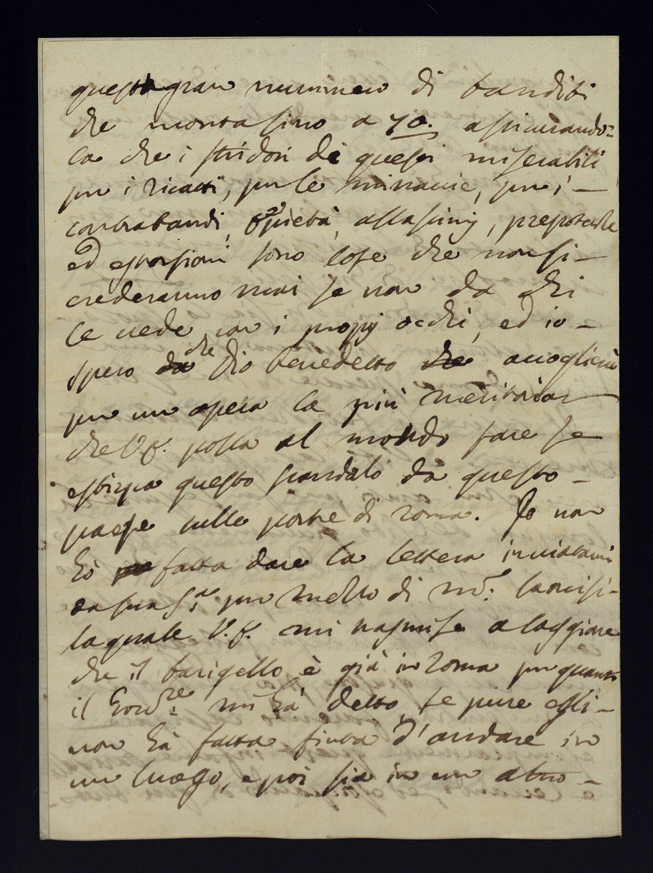 questo gran nummero di banditi
che montasino a 70. assicurando=
la che i stridori di questi miserabili
per i ricatti, per le minaccie, per i —
contrabandi, assassinij, prepotenze
ed estorsioni sono cose che non si —
crederanno mai se non da chi
le vede con i propij occhi, ed io —
spero che Dio benedetto accoglierà
per un opera la più meritoria
che V.S. possa al mondo fare se
estirpa questo scandalo da questo —
paese sulle porte di Roma. Io non
hò fatta dare la lettera inviatami
da sua per mezzo di
la quale V.S. mi rasmise a
che il barigello è già in Roma per quanto
il mi hà detto, se pure egli —
non hà fatta finta d'andare in
un luogo, e poi sia in un altro —